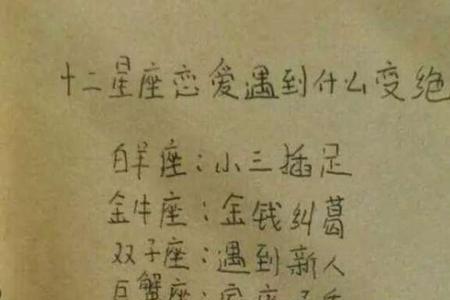 十二星座恋爱遇到什么变绝
白羊座：小三插足
金牛座：金钱纠葛
双子座：遇到新人
巨蟹座：